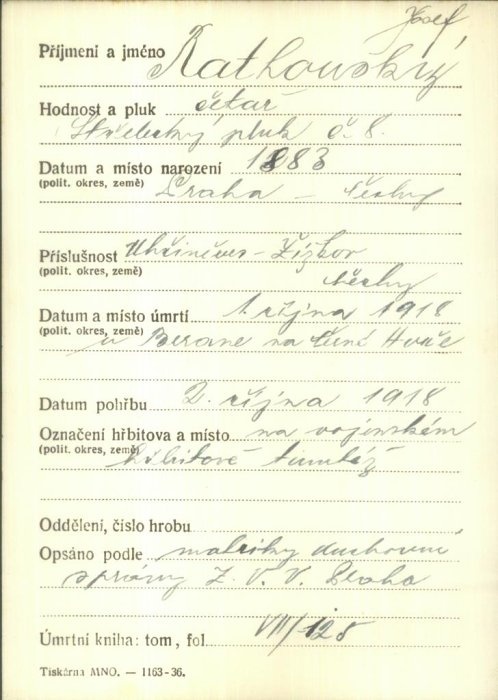 Josef,
Příjmení a jméno Ratkovský
Hodnost a pluk četař
Střelecký pluk č. 8.
Datum a místo narození 1883
(polit. okres, země) Praha – Čechy
Příslušnost Uhřiněves – Žižkov
(polit. okres, země) Čechy
Datum a místo úmrtí 1. října 1918
(polit. okres, země) u Berane na Černé Hoře
Datum pohřbu 2. října 1918
Označení hřbitova a místo na vojenském
(polit. okres, země) hřbitově tamtéž
Oddělení, číslo hrobu
Opsáno podle matriky duchovní
správy Z. V. V. Praha
Úmrtní kniha: tom, fol. VII/125
Tiskárna MNO. — 1163-36.